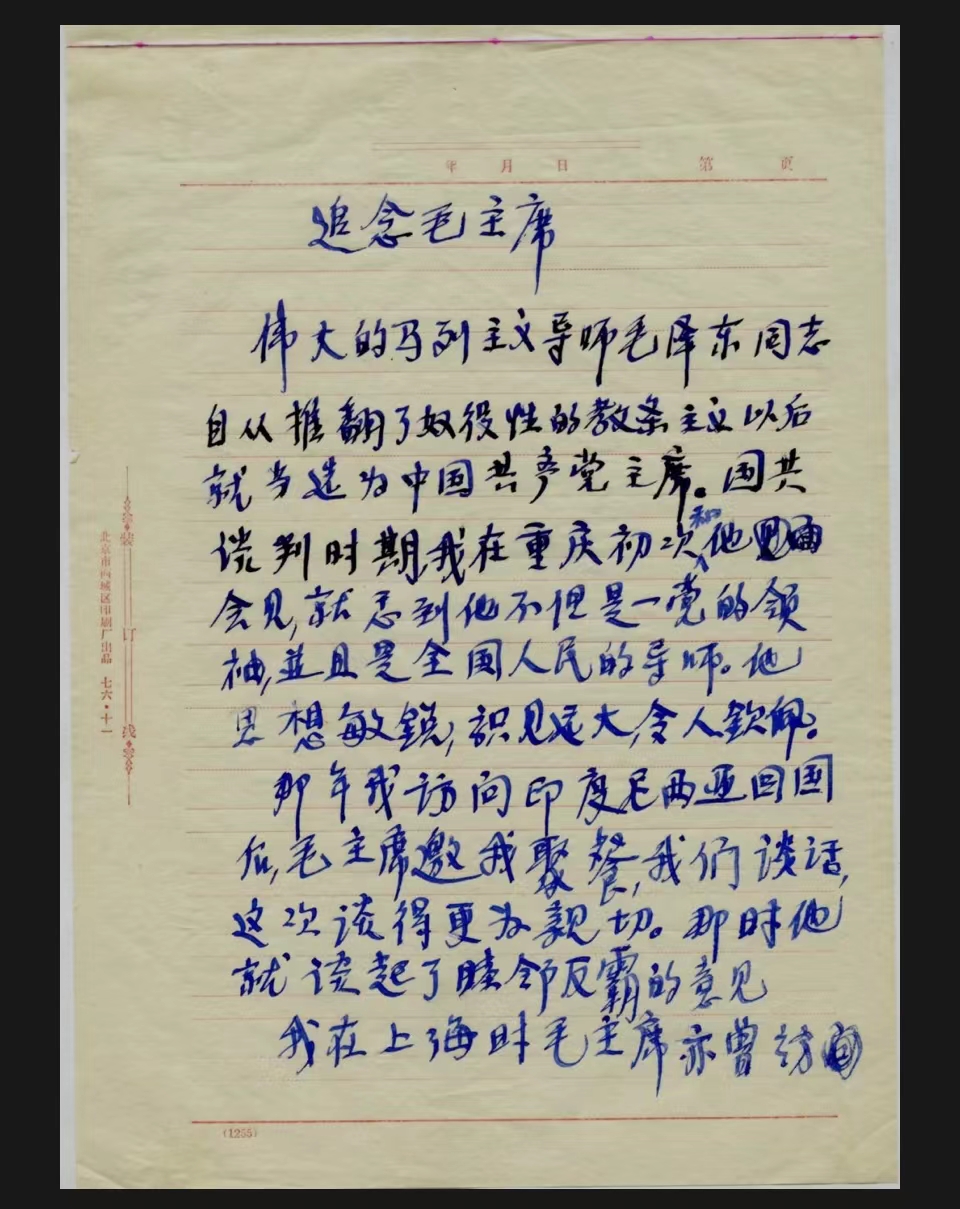 年 月 日 第 页
追念毛主席
伟大的马列主义导师毛泽东同志
自从推翻了奴役性的教条主义以后
就当选为中国共产党主席。国共
谈判时期,我在重庆初次和他
会见,就忐到他不但是一党的领
袖,並且是全国人民的导师。他
思想敏锐,识见远大,令人钦佩。
那年我访问印度尼西亚回国
后,毛主席邀我聚餐,我们谈话,
这次谈得更为親切。那时他
就谈起了睦邻反霸的意见
我在上海时毛主席亦曾访
装订线
北京市西城区印刷厂出品 七六·十一
(1255)